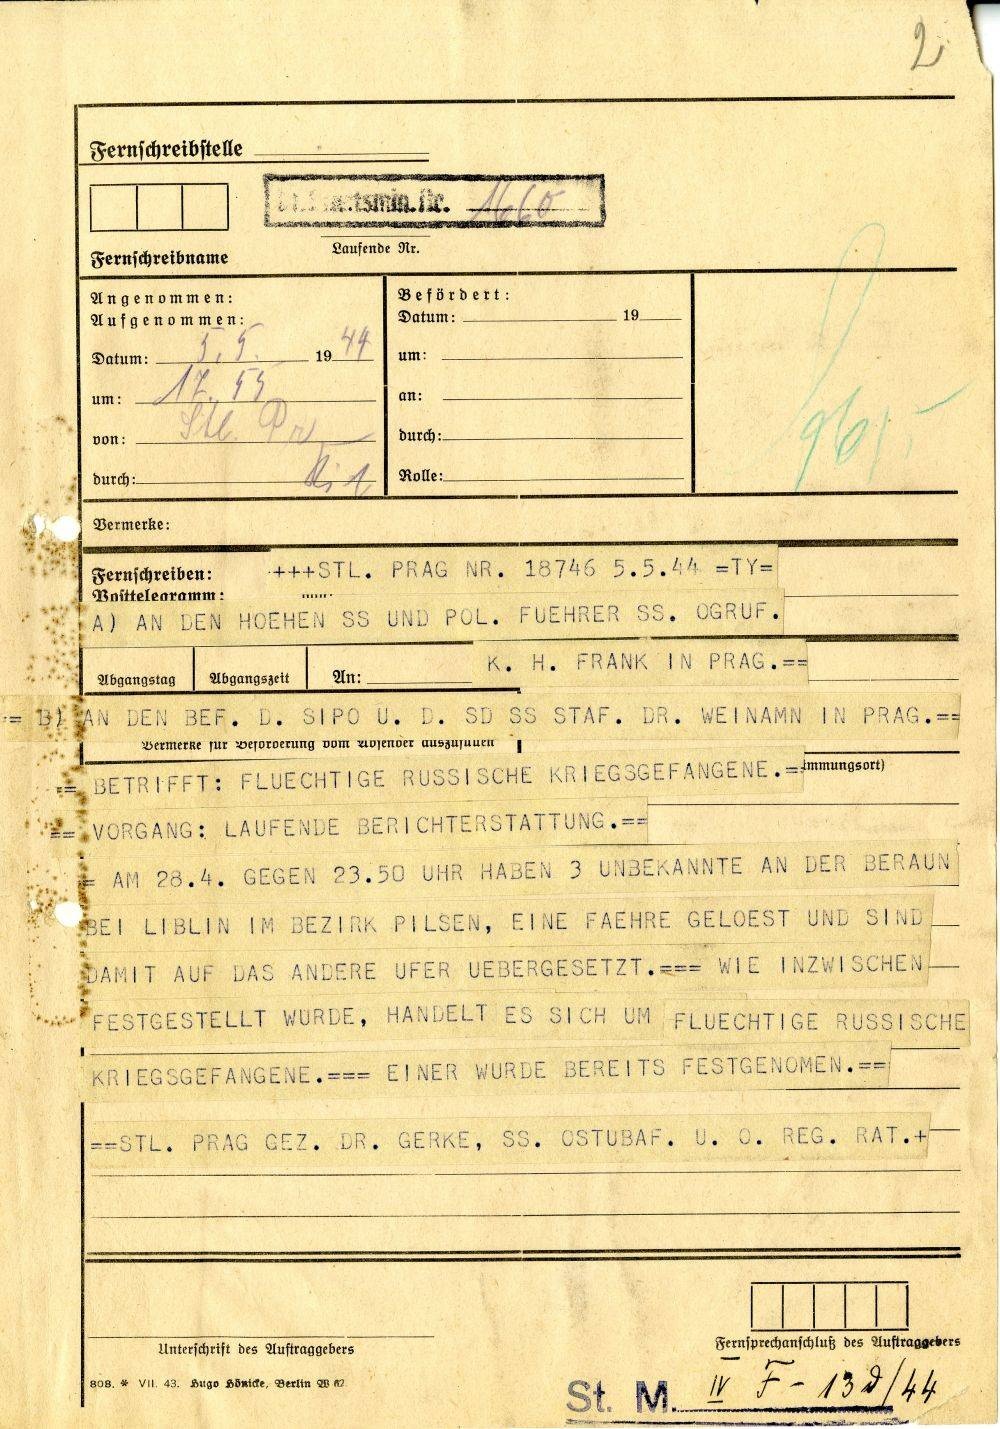 2
Fernschreibstelle
1660
Laufende Nr.
Fernschreibname
Angenommen:
Aufgenommen:
Datum: 5.5. 1944
um: 17.55
von: Stl. Pr
durch:
Befördert:
Datum: 19
um:
an:
durch:
Rolle:
Vermerke:
Fernschreiben: +++STL. PRAG NR. 18746 5.5.44 =TY=
Posttelegramm:
A) AN DEN HOEHEN SS UND POL. FUEHRER SS. OGRUF.
K. H. FRANK IN PRAG.==
Abgangstag Abgangszeit An:
== B) AN DEN BEF. D. SIPO U. D. SD SS STAF. DR. WEINAMN IN PRAG.==
Vermerke für Beförderung vom Absender auszufüllen
== BETRIFFT: FLUECHTIGE RUSSISCHE KRIEGSGEFANGENE.== immungsort)
== VORGANG: LAUFENDE BERICHTERSTATTUNG.==
= AM 28.4. GEGEN 23.50 UHR HABEN 3 UNBEKANNTE AN DER BERAUN
BEI LIBLIN IM BEZIRK PILSEN, EINE FAEHRE GELOEST UND SIND
DAMIT AUF DAS ANDERE UFER UEBERGESETZT.=== WIE INZWISCHEN
FESTGESTELLT WURDE, HANDELT ES SICH UM FLUECHTIGE RUSSISCHE
KRIEGSGEFANGENE.=== EINER WURDE BEREITS FESTGENOMEN.==
==STL. PRAG GEZ. DR. GERKE, SS. OSTUBAF. U. O. REG. RAT.+
Unterschrift des Auftraggebers
Fernsprechanschluß des Auftraggebers
808. * VII. 43. Hugo Hönicke, Berlin W 62
St. M. IV F - 13 d/44